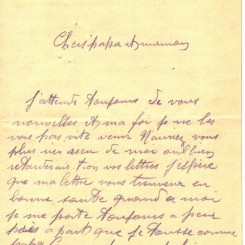 Chers papa et maman
J'attends toujours de vous
nouvelles et ma foi je ne les
vois pas vite venir N'aurez vous
plus rien recu de moi ou bien
retiendrait-on vos lettres j'espère
que ma lettre vous trouvera en
bonne santé quand a moi
je me porte toujours a peu
près a part que je tousse comme